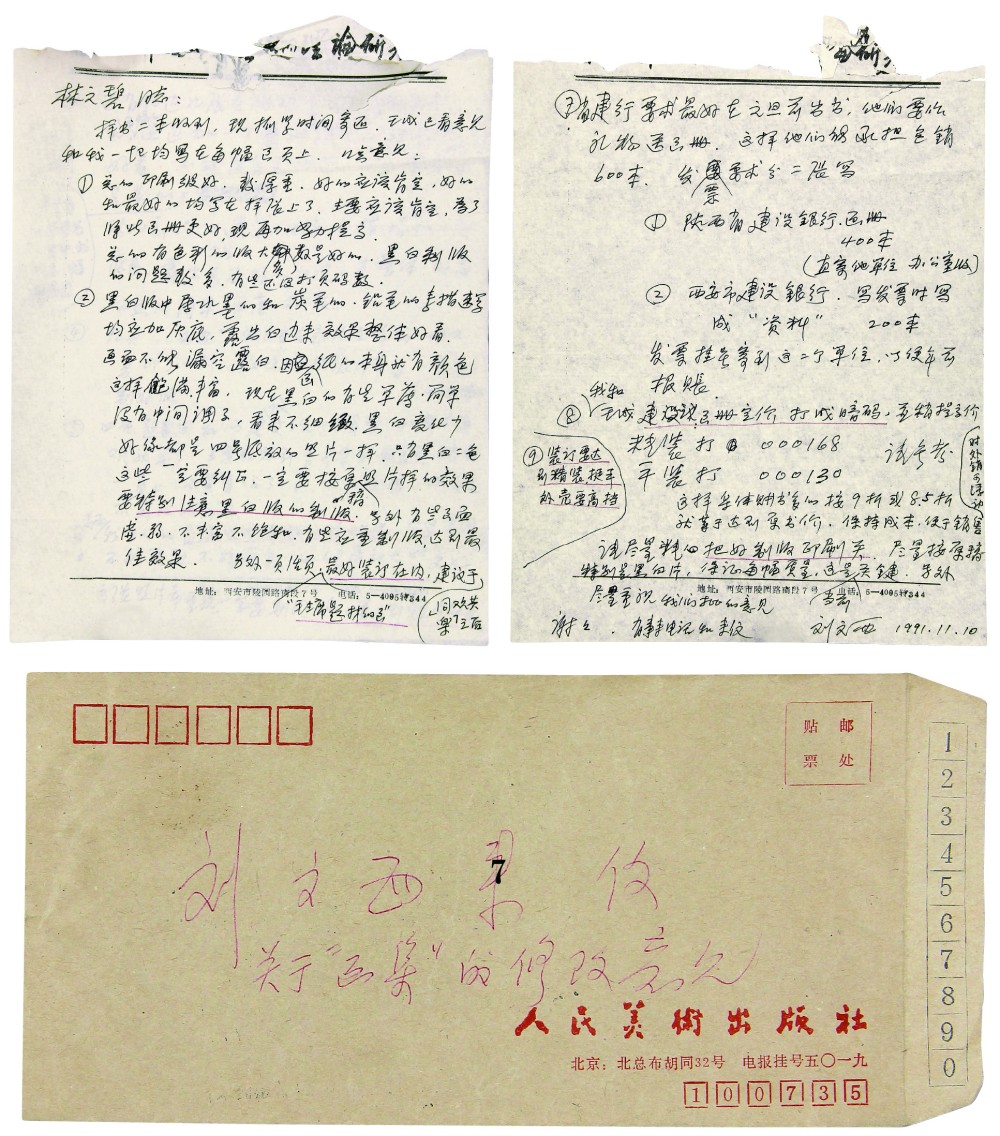 林文碧同志：
样书二本收到，现抓紧时间寄返。天成已看意见
和我一起均写在每幅画页上。口头意见：
① 总的印刷较好，较厚重，好的应该肯定，好的
和最好的均写在样张上了，主要应该肯定，为了
使此画册更好，现再加努力提高。
总的有色彩的版大多数是好的，黑白制版
的问题较多，有些还没打页码数。
② 黑白版中原水墨的和炭笔的、铅笔的素描速写
均应加灰底，露出白边来效果整体好看，
画面不能漏空露白，因画纸的本身就有颜色
这样饱满丰富，现在黑白的有些单薄、简单
没有中间调子，看来不细致，黑白变化少
好像都是四号底放的照片一样，只有黑白二色
这些一定要纠正，一定要按原照片样的效果
要特别注意黑白版的制版。另外有些画面
虚、弱、不丰富不饱和，有些应重制版，达到最
佳效果。
另外一页
最好装订在内，建议于
同欢共
乐之后
地址：西安市陵园路南段7号 电话：5—4095转344
⑦ 省建行要求最好在元旦前出书，他们要作
礼物送画册，这样他们能承担包销
600本，发票要求分二张写
① 陕西省建设银行、画册
400本
(直寄他单位 办公室收)
② 西安市建设银行、写发票时写
成“资料” 200本
发票挂号寄到这二个单位，以便年前
报账。
⑧ 我和天成建议该画册定价打成暗码，并稍提高价
精装打 000168
平装打 000130
请参考
对外销可活动
⑨ 装订要达
到精装挺平
外壳要高档
这样集体购书的按9折或8.5折
就等于达到原书价，保持成本，便于销售
请尽量精心把好制版印刷关，尽量按原稿
特别是黑白片，保证每幅质量，这是关键。另外
地址：西安市陵园路南段7号 电话：5—4095转344
尽量重视我们校正的意见
谢谢，有事来电话和来信 刘文西 1991.11.10
贴 邮
票 处
1
2
3
4
5
6
7
8
9
0
刘文西来信
7
关于“画集”的修改意见
人民美術出版社
北京：北总布胡同32号 电报挂号五〇一九
100735